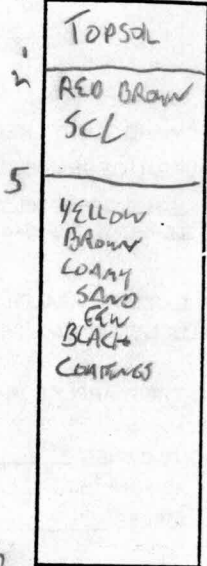 TOPSOIL
RED BROWN
SCL
5
YELLOW
BROWN
LOAMY
SAND
FEW
BLACK
COATINGS